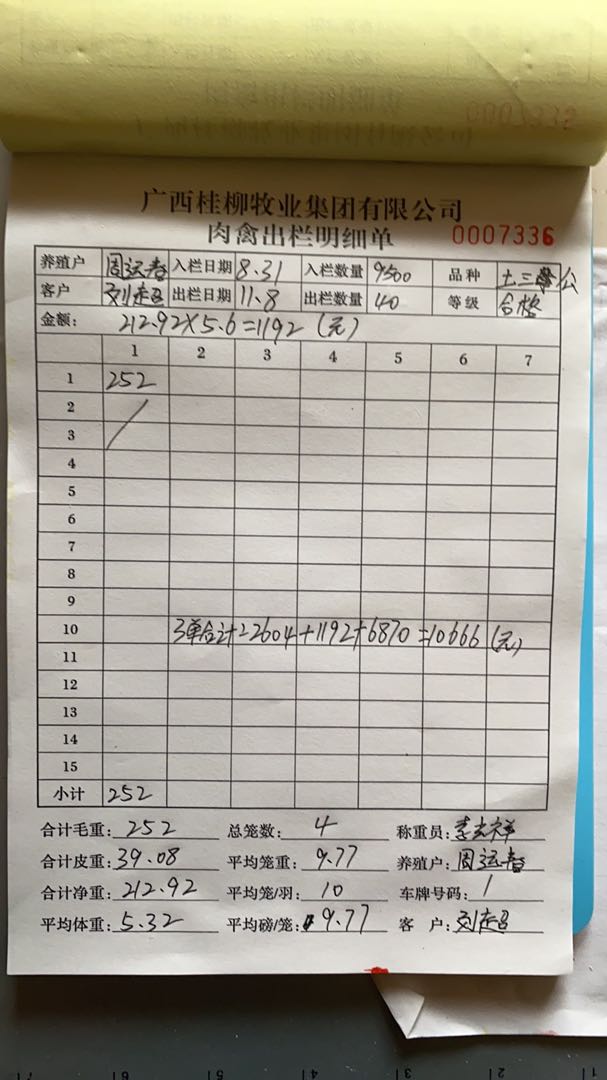 0003332
广西桂柳牧业集团有限公司
肉禽出栏明细单 0007336
养殖户 周运春 入栏日期 8.31 入栏数量 9500 品种 土三 公
客户 刘超召 出栏日期 11.8 出栏数量 40 等级 合格
金额: 212.92×5.6=1192(元)
1 2 3 4 5 6 7
1 252
2
3
4
5
6
7
8
9
10 3单合计=2604+1192+6870=10666(元)
11
12
13
14
15
小计 252
合计毛重: 252 总笼数: 4 称重员: 李玄祥
合计皮重: 39.08 平均笼重: 9.77 养殖户: 周运春
合计净重: 212.92 平均笼/羽: 10 车牌号码: 1
平均体重: 5.32 平均磅/笼: 9.77 客 户: 刘超召